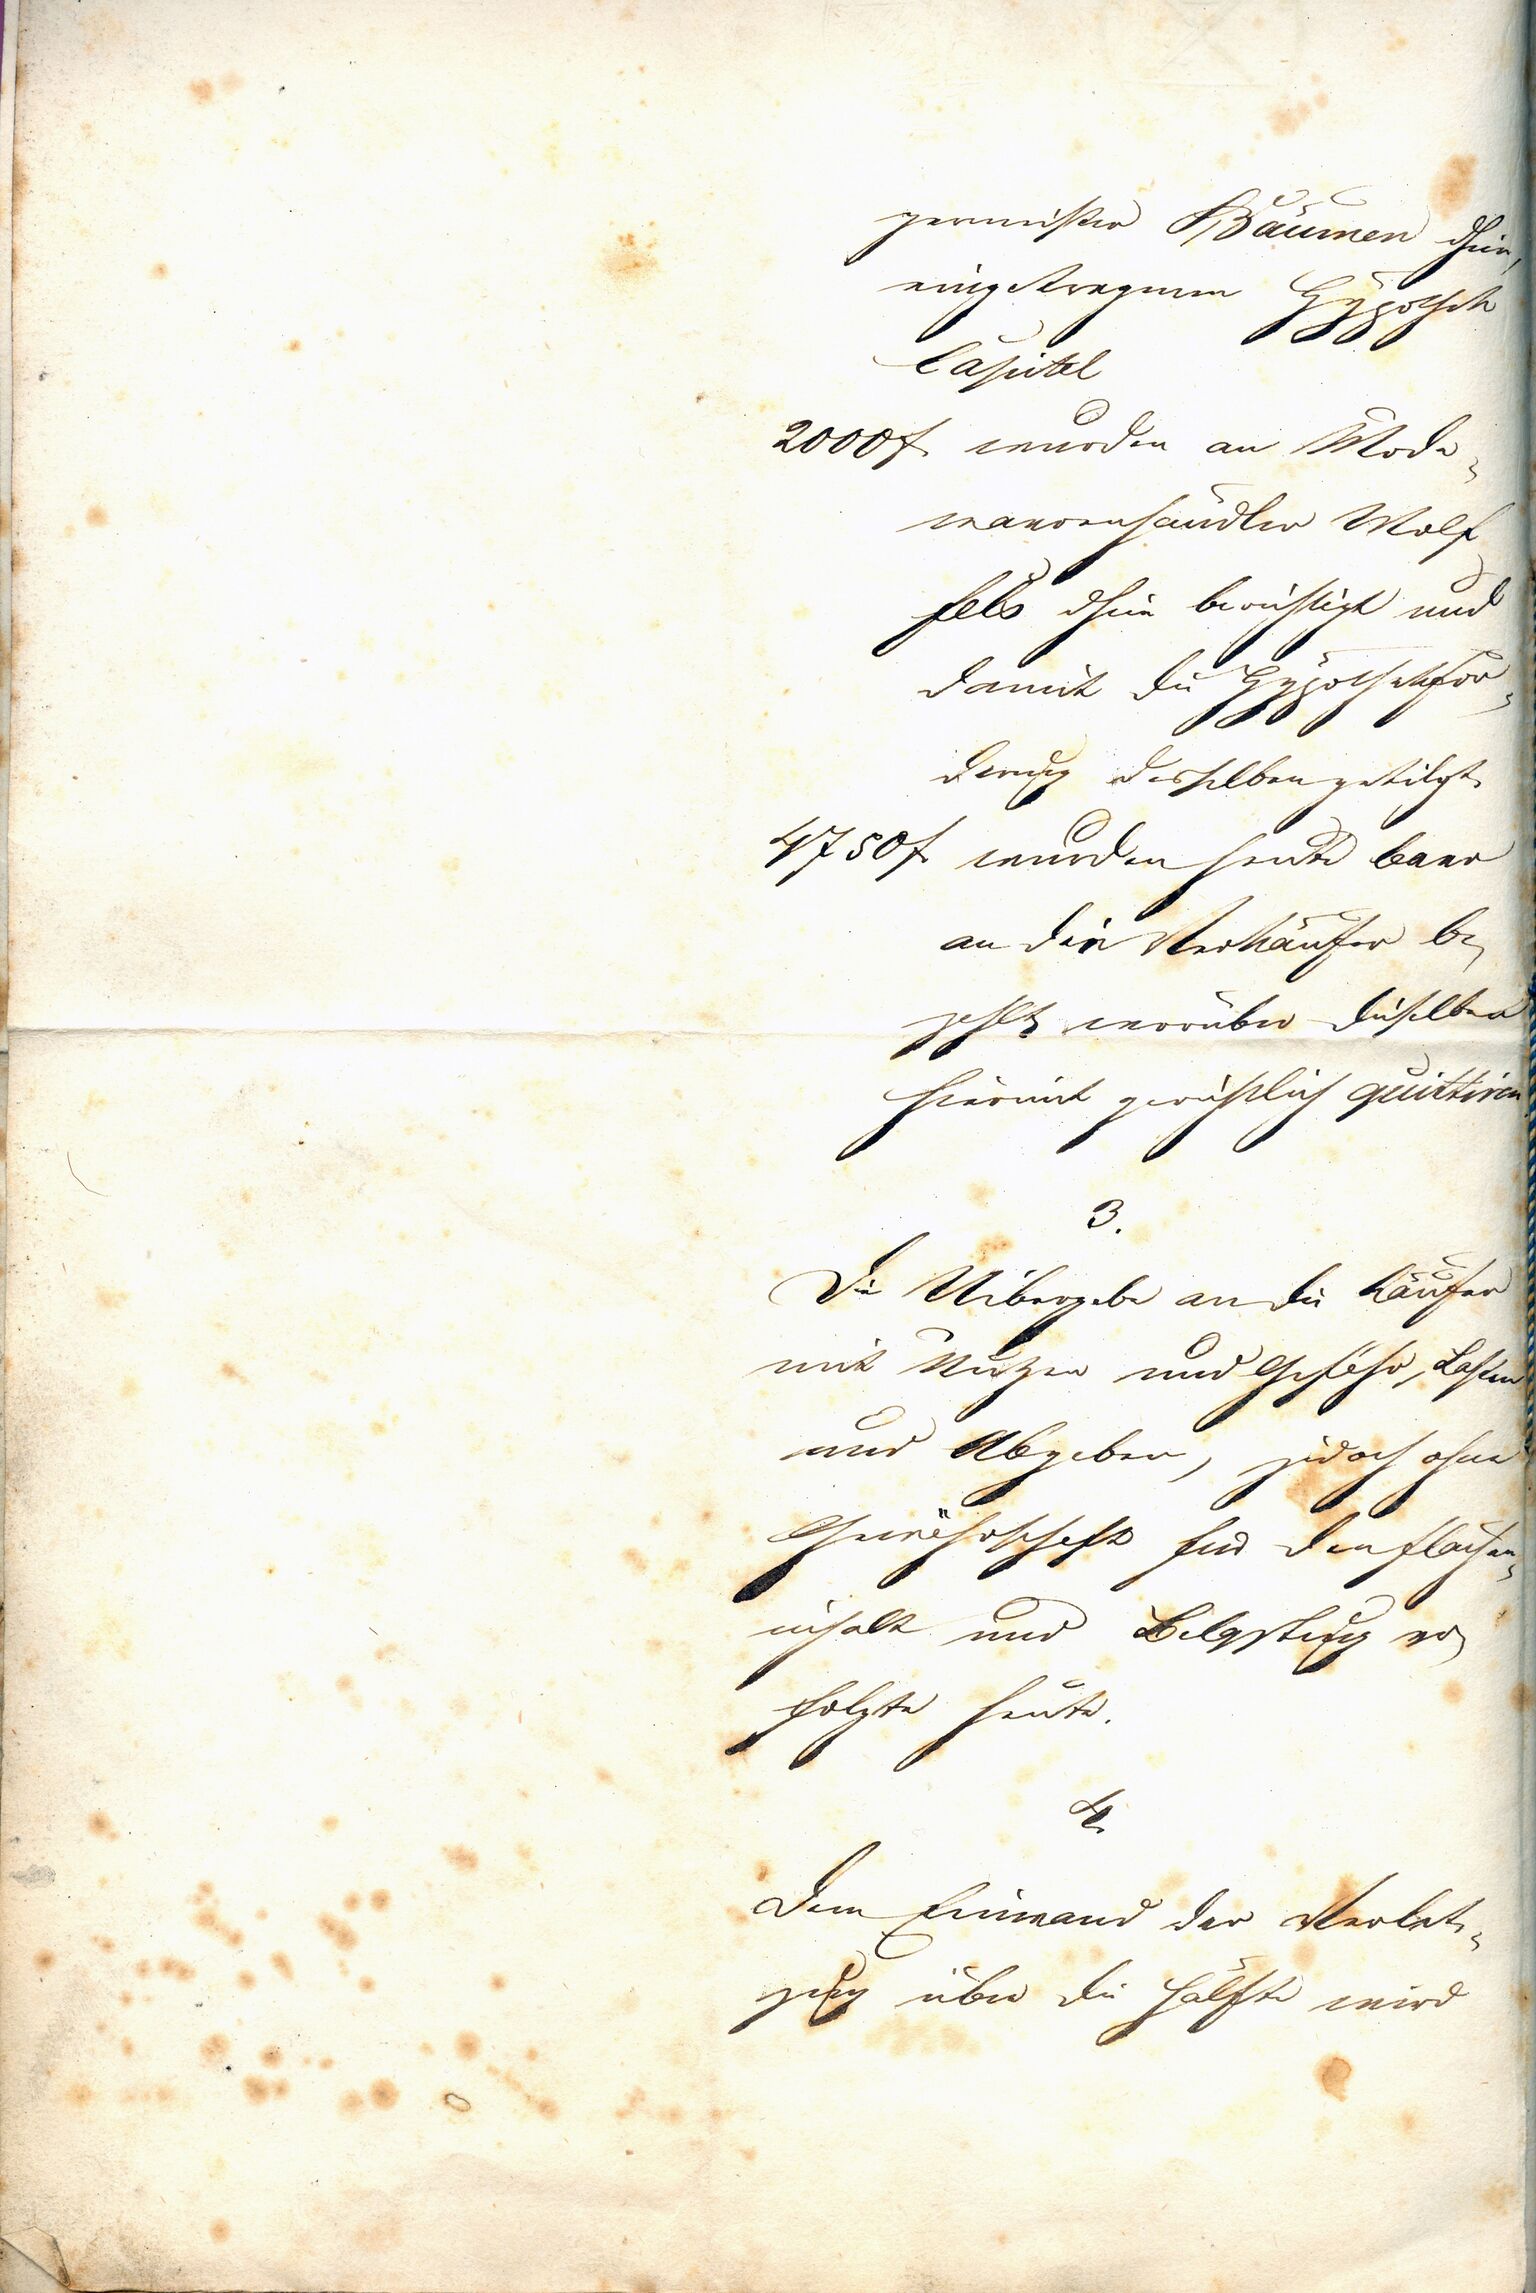 germeister Bäumen dhier,
eingetragenen Hypothek
Capital
2000 f. wurden an Mode-
waarenhändler Wolf
Fels dhier berichtigt und
damit die Hypothekfor-
derung desselben getilgt.
4750 f. wurden heute baar
an die Verkäufer be-
zahlt worüber dieselben
hiermit gerichtlich quittiren.
3.
Die Uibergabe an die Käufer
mit Nutzen und Gefahr, Lasten
und Abgaben, jedoch ohne
Gewährschaft für den Flächen-
inhalt und Belastung er-
folgte heute.
4.
Dem Einwand der Verlet-
zung über die Hälfte wird